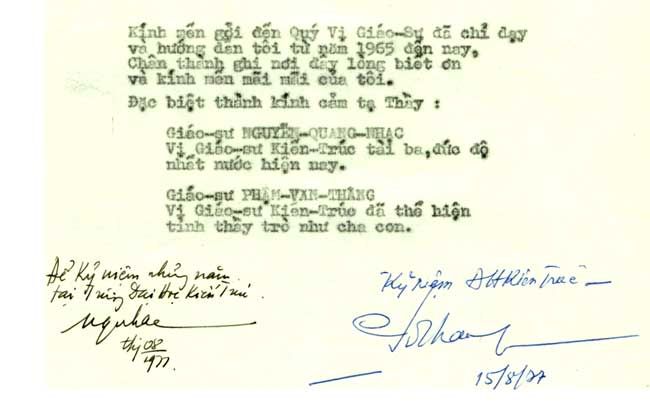 Kính mến gởi đến Quý Vị Giáo-Sư đã chỉ dạy
và hướng dẫn tôi từ năm 1965 đến nay.
Chân thành ghi nơi đây lòng biết ơn
và kính mến mãi mãi của tôi.
Đặc biệt thành kính cảm tạ Thầy :
Giáo-sư NGUYỄN-QUANG-NHẠC
Vị Giáo-sư Kiến-Trúc tài ba,đức độ
nhất nước hiện nay.
Giáo-sư PHẠM-VĂN-THĂNG
Vị Giáo-sư Kiến-Trúc đã thể hiện
tình thầy trò như cha con.
Để Kỷ niệm những năm
tại Trường Đại Học Kiến Trúc.
08
1977
Kỷ niệm ĐH Kiến Trúc
15/8/77